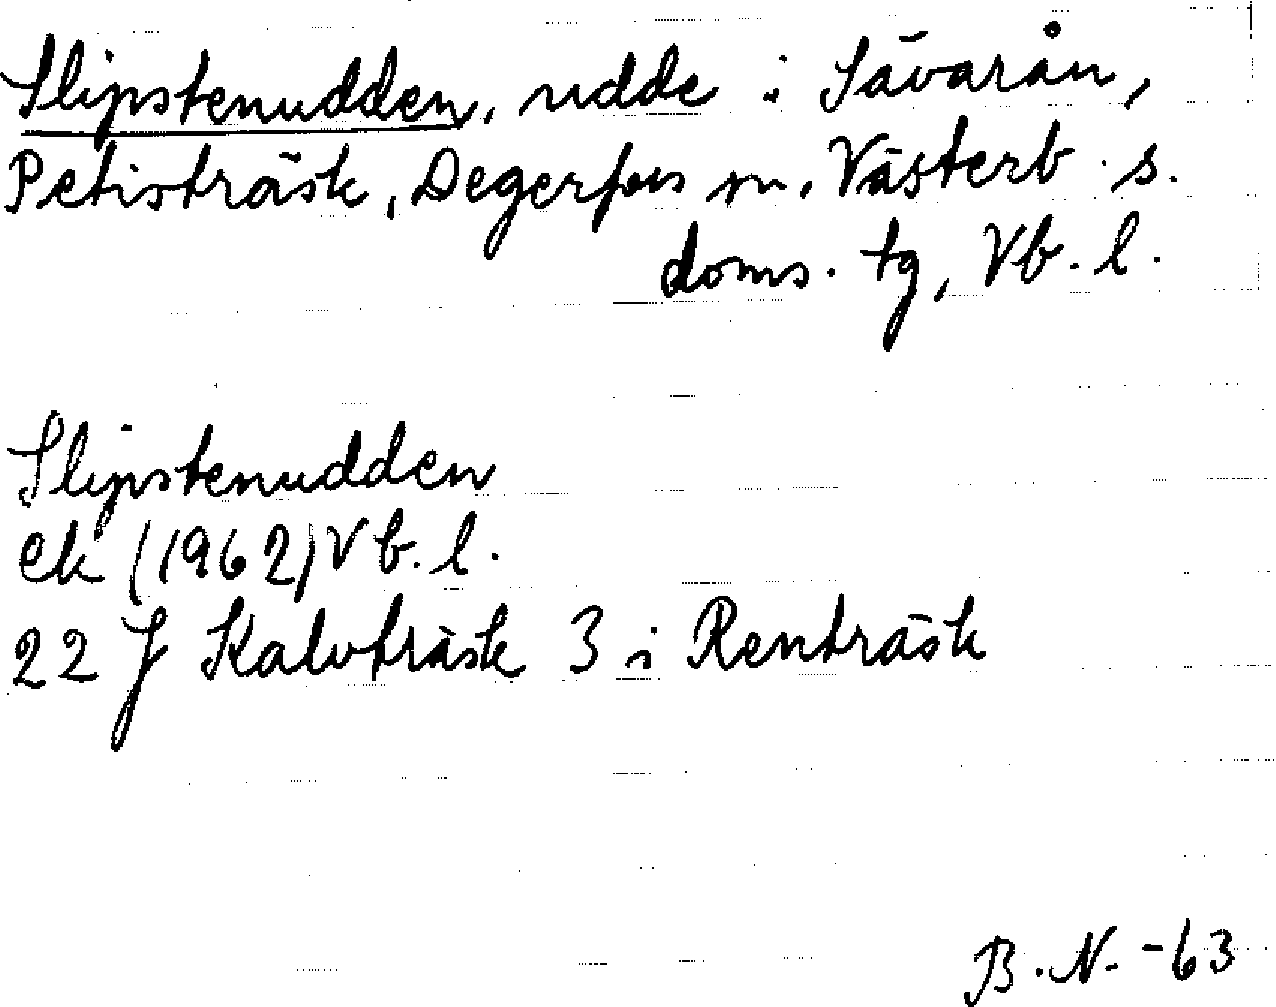 Slipstenudden, udde i Sävarån,
Petisträsk, Degerfors sn, Västerb. s.
doms. tg, Vb. l.
Slipstenudden
ek (1962) Vb. l.
22 J Kalvträsk 3 i Renträsk
B. N. -63